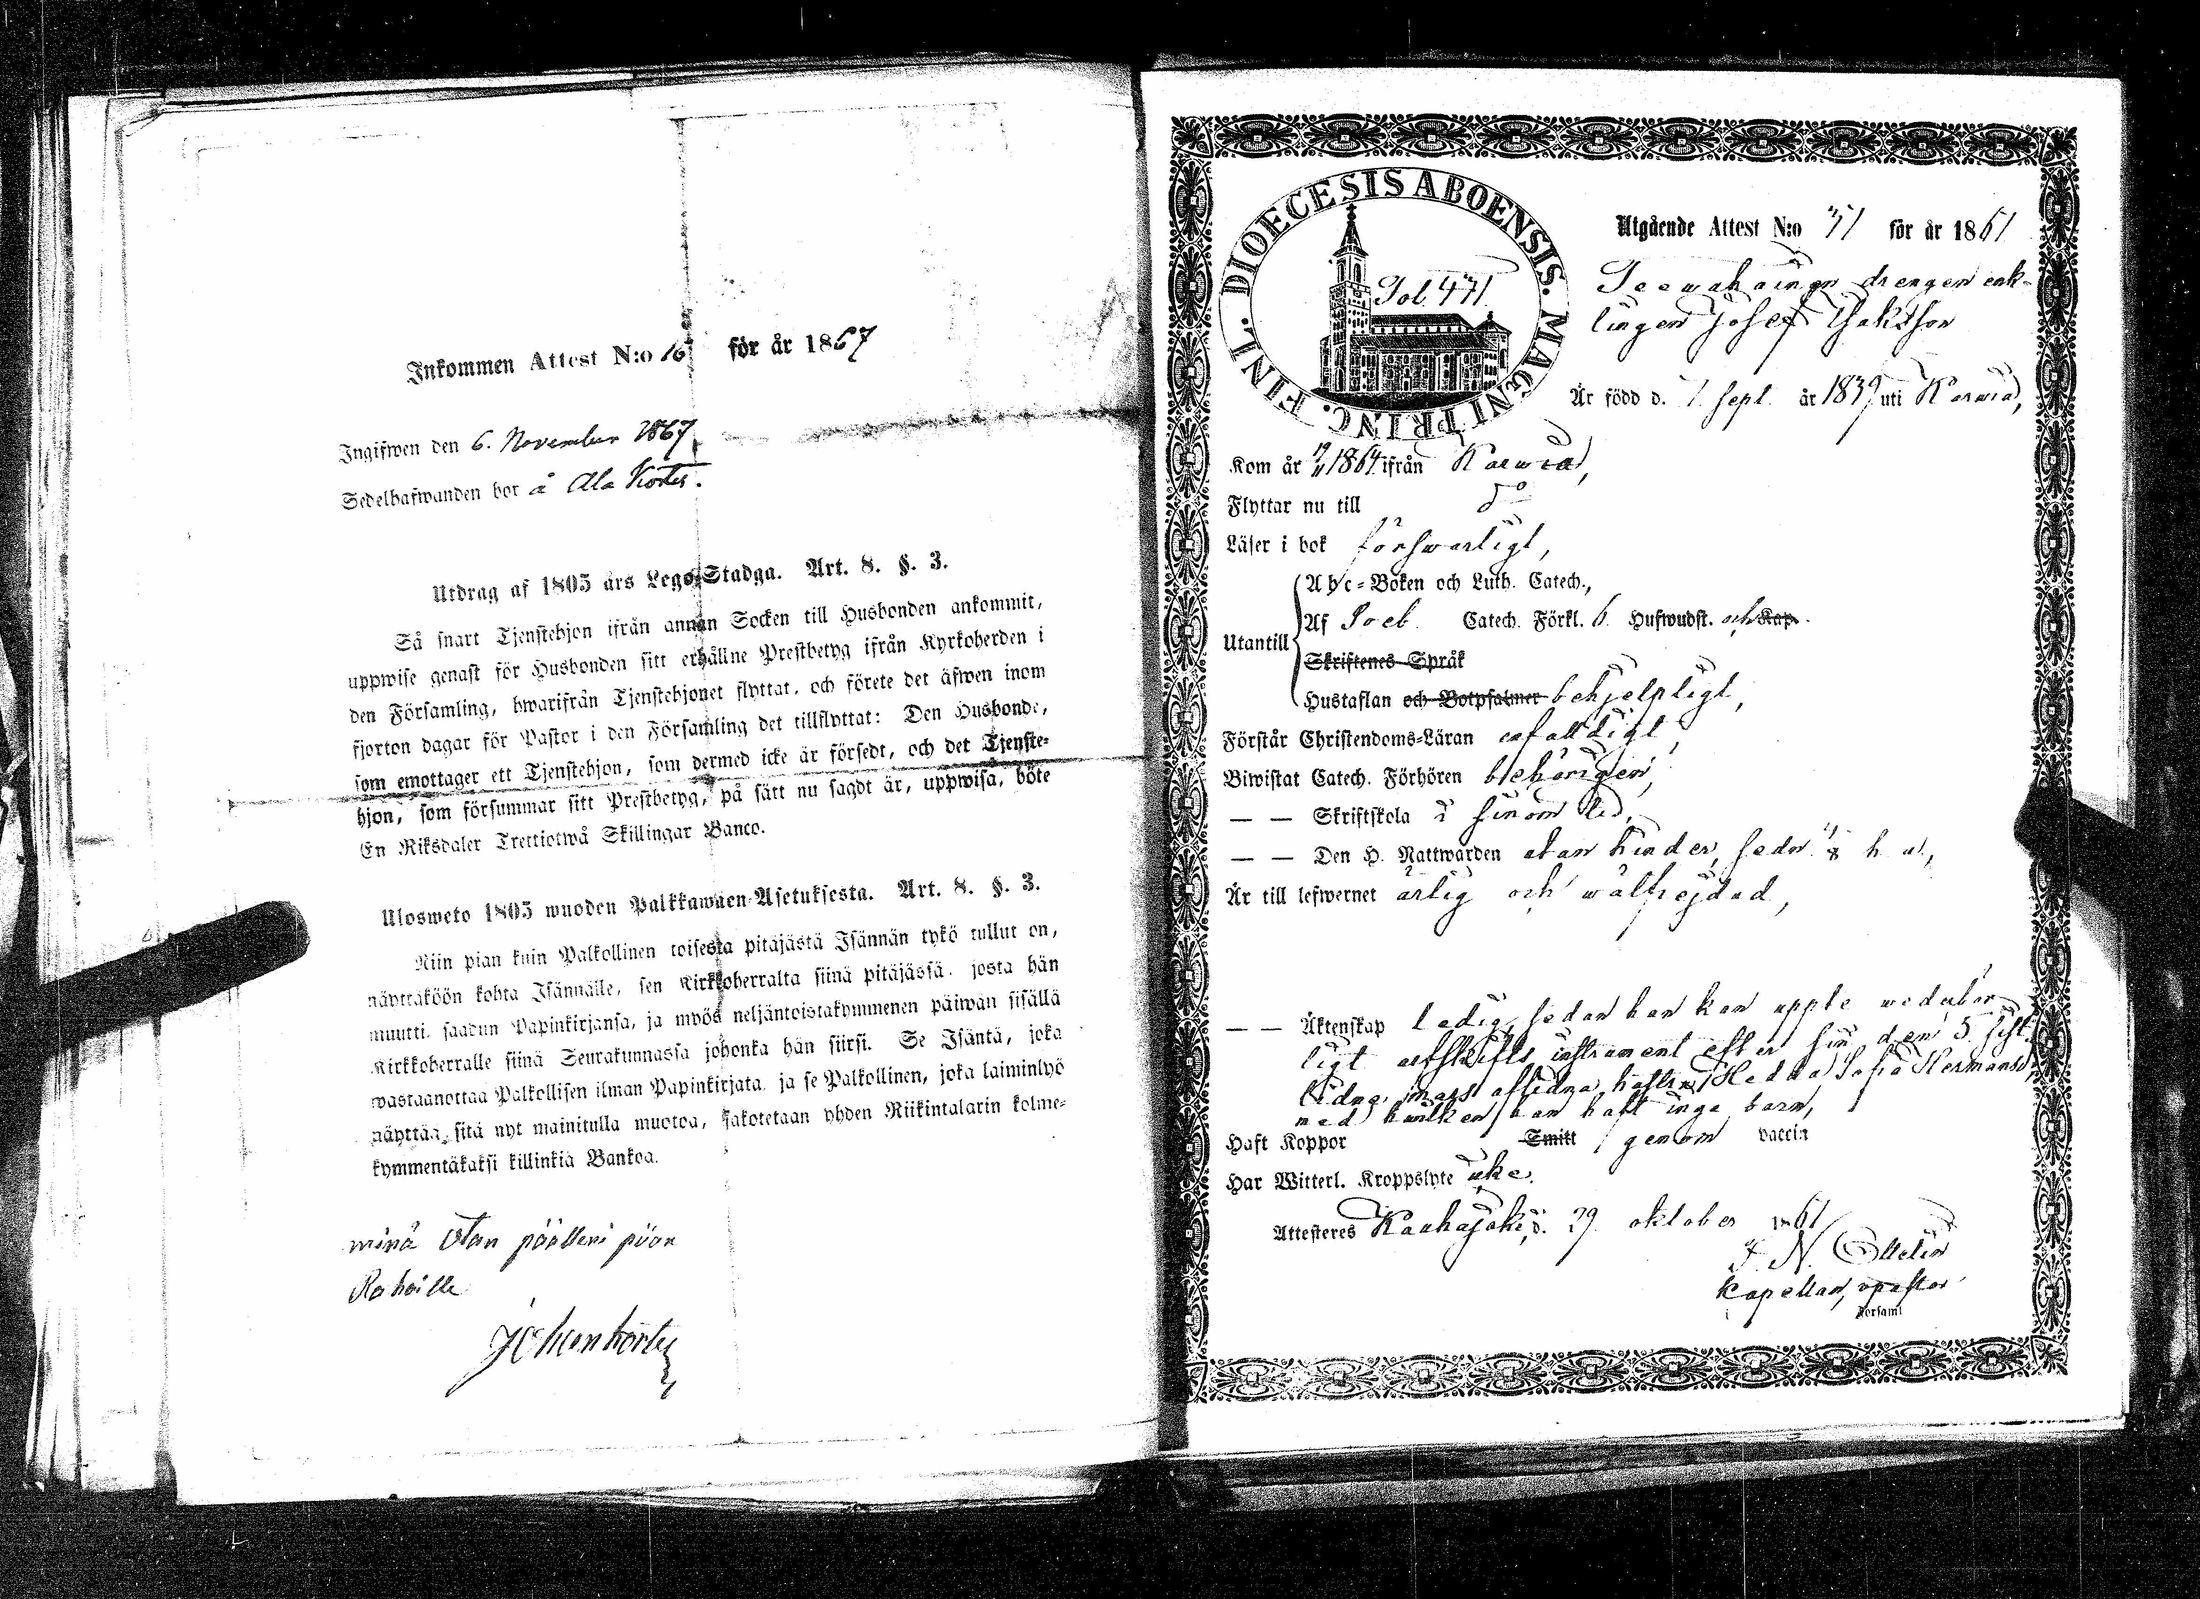 Inkommen Attest N:o 16 för år 1867
Ingifwen den 6. November 1867.
Sedelhafwanden bor å Ala Korte.
Utdrag af 1805 års Lego-Stadga. Art. 8. §. 3.
Så snart Tjenstehjon ifrån annan Socken till Husbonden ankommit,
uppwise genast för Husbonden sitt erhållne Prestbetyg ifrån Kyrkoherden i
den Församling, hwarifrån Tjenstehjonet flyttat, och förete det äfwen inom
fjorton dagar för Pastor i den Församling det tillflyttat: Den Husbonde,
som emottager ett Tjenstehjon, som dermed icke är försedt, och det Tjenste-
hjon, som försummar sitt Prestbetyg, på sätt nu sagdt är, uppwisa, böte
En Riksdaler Trettiotwå Skillingar Banco.
Ulosweto 1805 wuoden Palkkawäen-Asetuksesta. Art. 8. §. 3.
Niin pian kuin Palkollinen toisesta pitäjästä Isännän tykö tullut on,
näyttäköön kohta Isännälle, sen Kirkkoherralta siinä pitäjässä, josta hän
muutti, saadun Papinkirjansa, ja myös neljäntoistakymmenen päiwän sisällä
Kirkkoherralle siinä Seurakunnassa johonka hän siirsi. Se Isäntä, joka
wastaanottaa Palkollisen ilman Papinkirjata, ja se Palkollinen, joka laiminlyö
näyttää sitä nyt mainitulla muotoa, sakotetaan yhden Riikintalarin kolme-
kymmentäkaksi killinkiä Bankoa.
minä otan päälleni
DIOECESIS ABOENSIS. MAGNI PRINC. FINL.
Fol. 471
Utgående Attest N:o 71 för år 1861
drengen enk-
lingen Josef
Är född d. 7 Sept. år 1839 uti Karwia,
Kom år 1864 ifrån Karwia,
Flyttar nu till d:o
Läser i bok förswarligt,
Utantill
Abc-Boken och Luth. Catech.,
Af Catech. Förkl. 6 Hufwudst. och Kap.
Skriftenes Språk
Hustaflan och Botpsalmer behjelpligt,
Förstår Christendoms-Läran enfaldigt,
Biwistat Catech. Förhören behörigen,
— — Skriftskola i sinom tid,
— — Den H. Nattwarden utan hinder, sedn h. a.,
Är till lefwernet ärlig och wälfrejdad,
— — Äktenskap ledig, sedan han kan uppte wederbör-
ligt afskifts instrument efter sin den 5 sistl.
afledna hustru Hedda Sofia Hermansd.,
med hwilken han haft inga barn,
Haft Koppor Smitt genom vaccin
Har Witterl. Kroppslyte icke.
Attesteres Kauhajoki, d. 29. oktober 1861
kapellan, v pastor
Församl